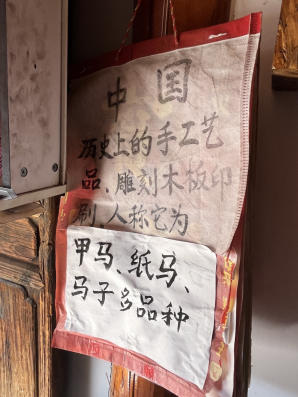 中国
历史上的手工艺
品、雕刻木板印
刷、人称它为
甲马、纸马、
马子多品种